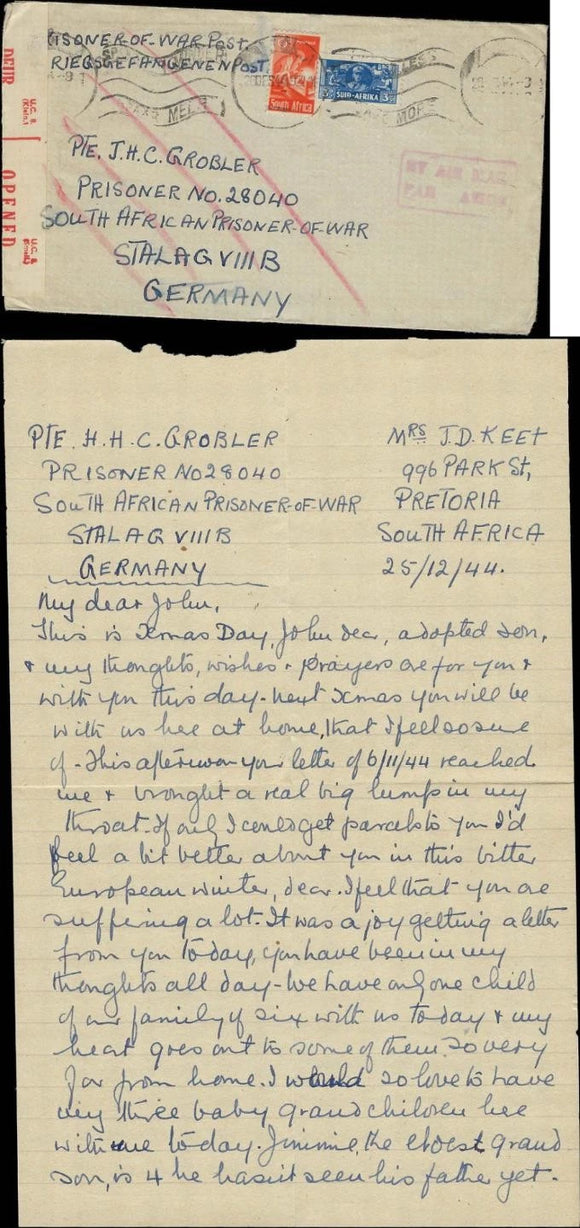 ISONER-OF-WAR POST.
RIEGSGEFANGENEN POST.
South Africa
SUID-AFRIKA
3D
MORE
BY AIR MAIL
PAR AVION
DEUR
OPENED
U.C. 8.
U.C. 8
PTE. J.H.C. GROBLER
PRISONER NO. 28040
SOUTH AFRICAN PRISONER-OF-WAR
STALAG VIII B
GERMANY
PTE. H.H.C. GROBLER
PRISONER NO 28040
SOUTH AFRICAN PRISONER-OF-WAR
STALAG VIII B
GERMANY
MRS J.D. KEET
996 PARK St,
PRETORIA
SOUTH AFRICA
25/12/44.
My dear John,
This is Xmas Day, John dear, adopted son,
& my thoughts, wishes & prayers are for you &
with you this day - next Xmas you will be
with us here at home, that I feel so sure
of - This afternoon your letter of 6/11/44 reached
me & brought a real big lump in my
throat. If only I could get parcels to you I'd
feel a bit better about you in this bitter
European winter, dear. I feel that you are
suffering a lot. It was a joy getting a letter
from you to day, you have been in my
thoughts all day - We have only one child
of our family of six with us to day & my
heart goes out to some of them so very
far from home. I would so love to have
my three baby grandchildren here
with me to day. Jimmie, the eldest grand
son, is 4 he hasn't seen his father yet.